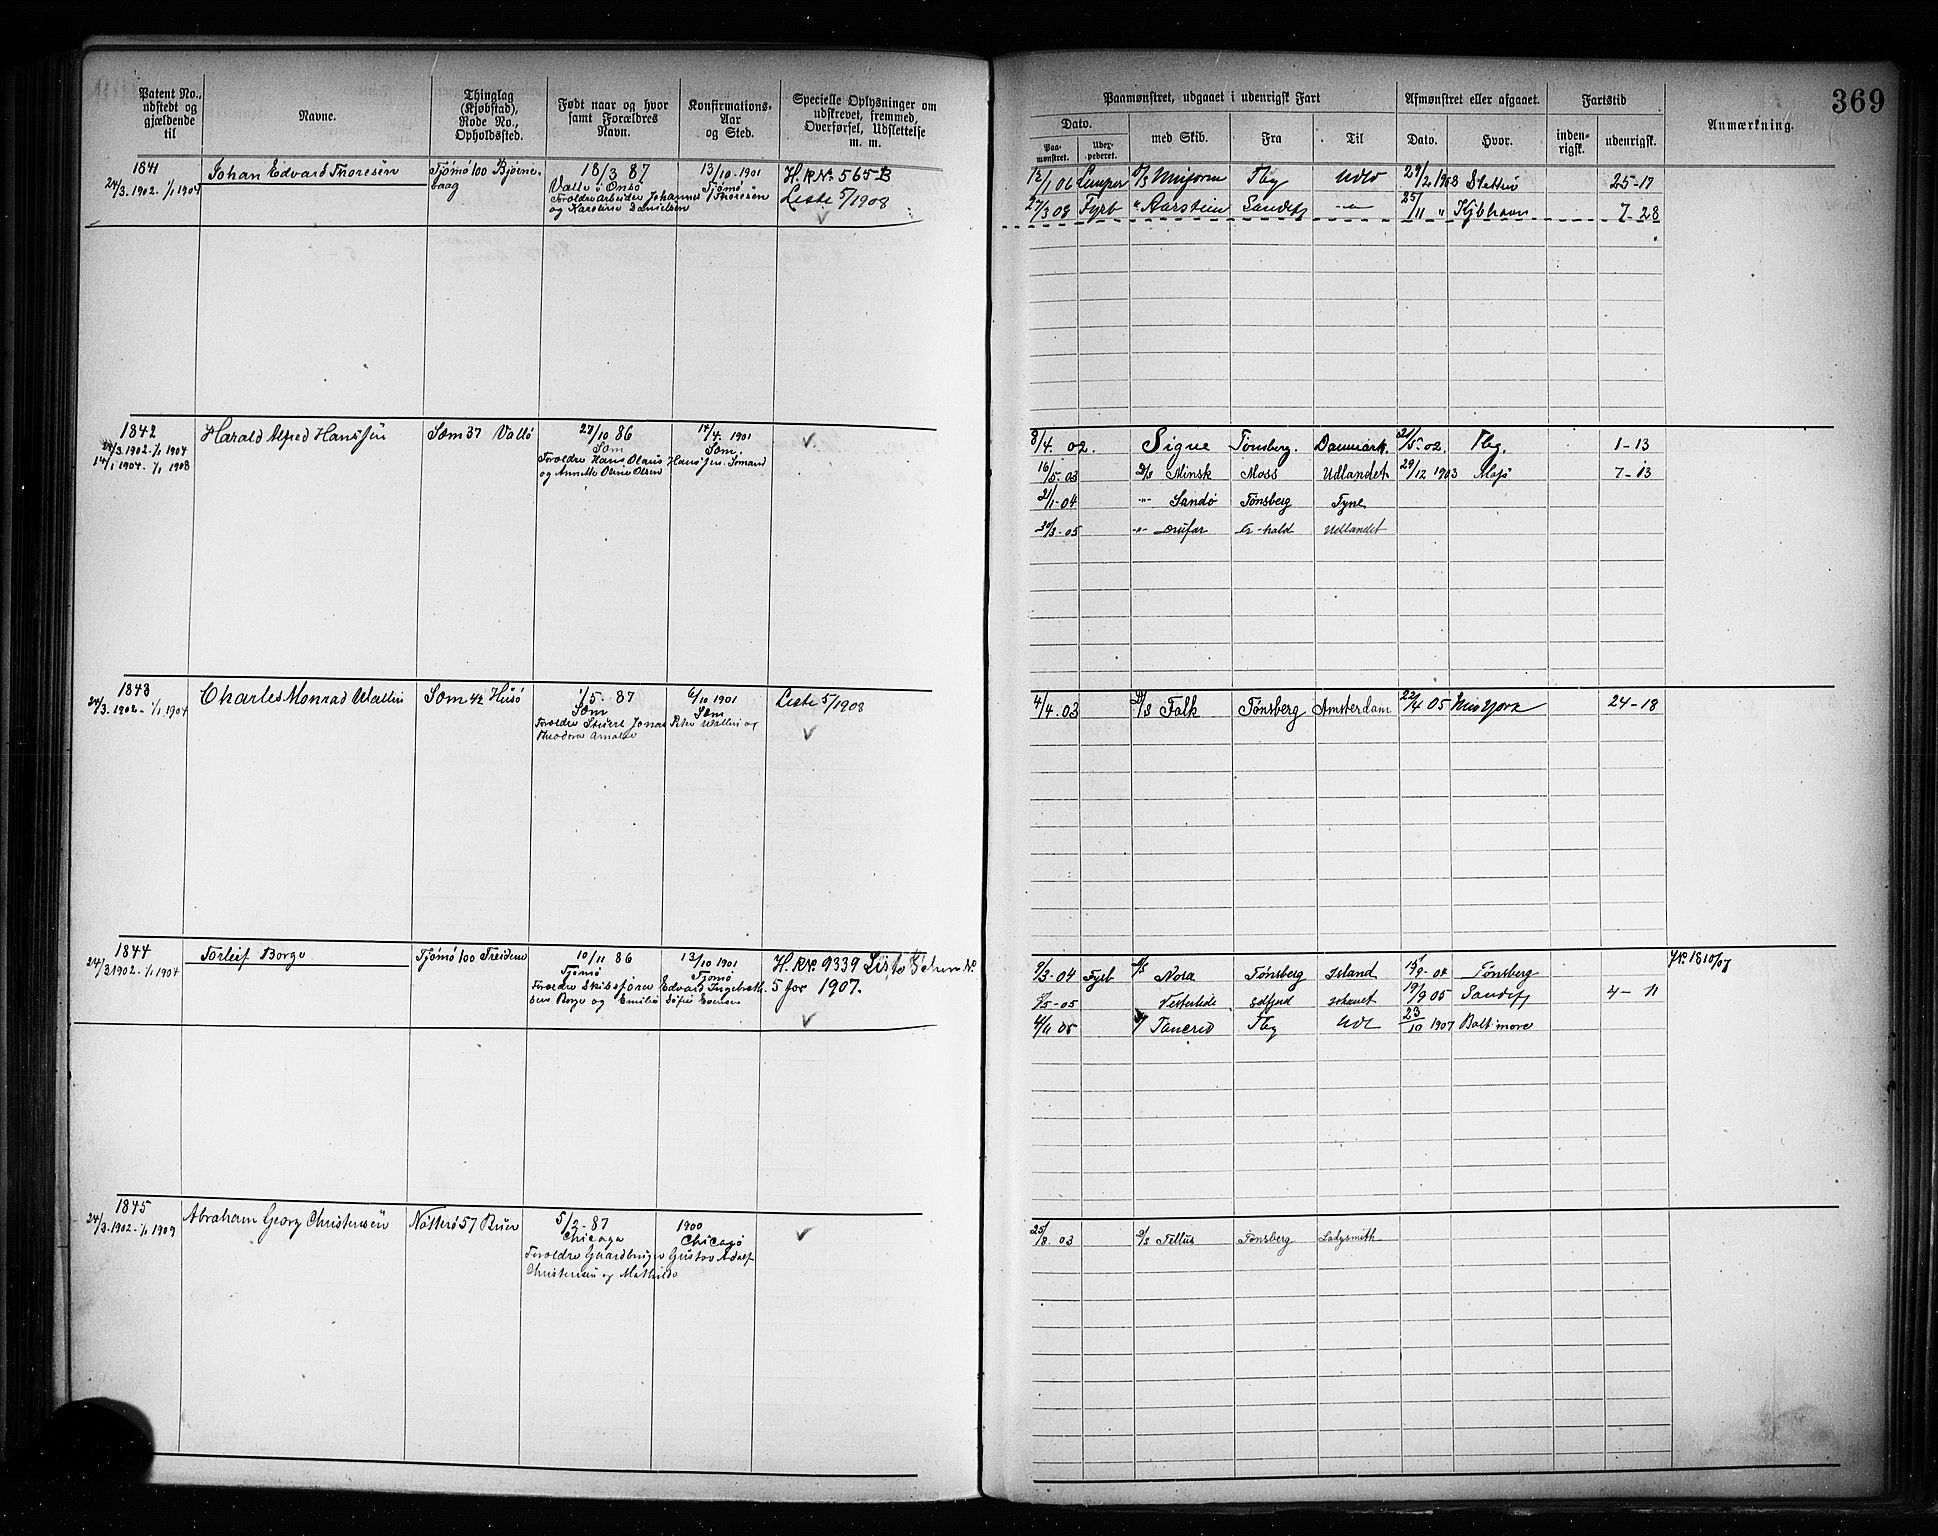 369
Patent No., udstedt og gjældende til
Navne.
Thinglag (Kjøbstad), Rode No., Opholdssted.
Født naar og hvor samt Forældres Navn.
Konfirmations-Aar og Sted.
Specielle Oplysninger om udskrevet, fremmed, Overførsel, Udslettelse m. m.
Paamønstret, udgaaet i udenrigsk Fart
Afmønstret eller afgaaet.
Fartstid
Anmærkning.
Dato.
med Skib.
Fra
Til
Dato.
Hvor.
inden-rigsk.
udenrigsk.
Paa-mønstret.
1841
24/3. 1902. 1/1 1904
Johan Edvard Thoresen
Tjømø 100 Bjørne-
baag
18/3 87
Vallø i Onsø
Foroldre Arbeider Johannes Thoresen
og Karoline Danielsen
13/10-1901
Tjømø
H. R No. 565 B
Liste 5/1908
12/1 06 Lemper Tbg Udld 29/2 1908 25-17
27/3 08 Fyrb " Aarstein Sandefj -"- 25/11 " Kjbhavn 7-28
1842
24/3. 1902. 1/1 1904
14/1 1904. 1/1 1908
Harald Alfred Hanssen
Sæm 37 Vallø
27/10 86
Sæm
Foroldre Hans Olaus Hanssen. Sømand
og Annette Oline Olsen
14/4. 1901
Sæm.
8/4. 02. Signe Tønsberg. Danmark. 31/5 02. Tbg. 1-13
16/5-03 D/S Minsk Moss Udlandet 29/12 1903 7-13
21/1-04 -"- Sandø Tønsberg Tyne
30/3-05 -"- Fr-hald Udlandet
1843
24/3. 1902 - 1/1 1904
Charles Monrad Wallin
Sæm 42 Husø
1/5. 87
Sæm
Foroldre Stuert Jonas Peter Wallin og
Theodora Amalie
6/10 1901
Sæm
Liste 5/1908
4/4.03 D/S Falk Tønsberg Amsterdam 22/4 05 New York 24-18
1844
24/3 1902. 1/1 1904
Torleif Borge
Tjømø 100 Treidene
10/11 86
Tjømø
Foroldre Skibsfører Edvard Ingebreth-
sen Borge og Emilie Sofie Evensen
13/10 1901
Tjømø
H. R No. 9339
5 for 1907.
9/3-04 Fyrb D/S Nora Tønsberg Island 15/9-04 Tønsberg
/5-05 Vesterlide 19/9 05 Sandefj 4-11
4/11 05 Tancred Tbg Udl 23/10 1907 Baltimore
1845
24/3. 1902-1/1 1909
Abraham Georg Christensen
Nøtterø 57 Buer
5/2-87
Chicago
Foroldre Guardbruger Gustav Adolf
Christensen og Mathilde
1900
Chicago
25/8.03 D/S Tellus Tønsberg Ladysmith